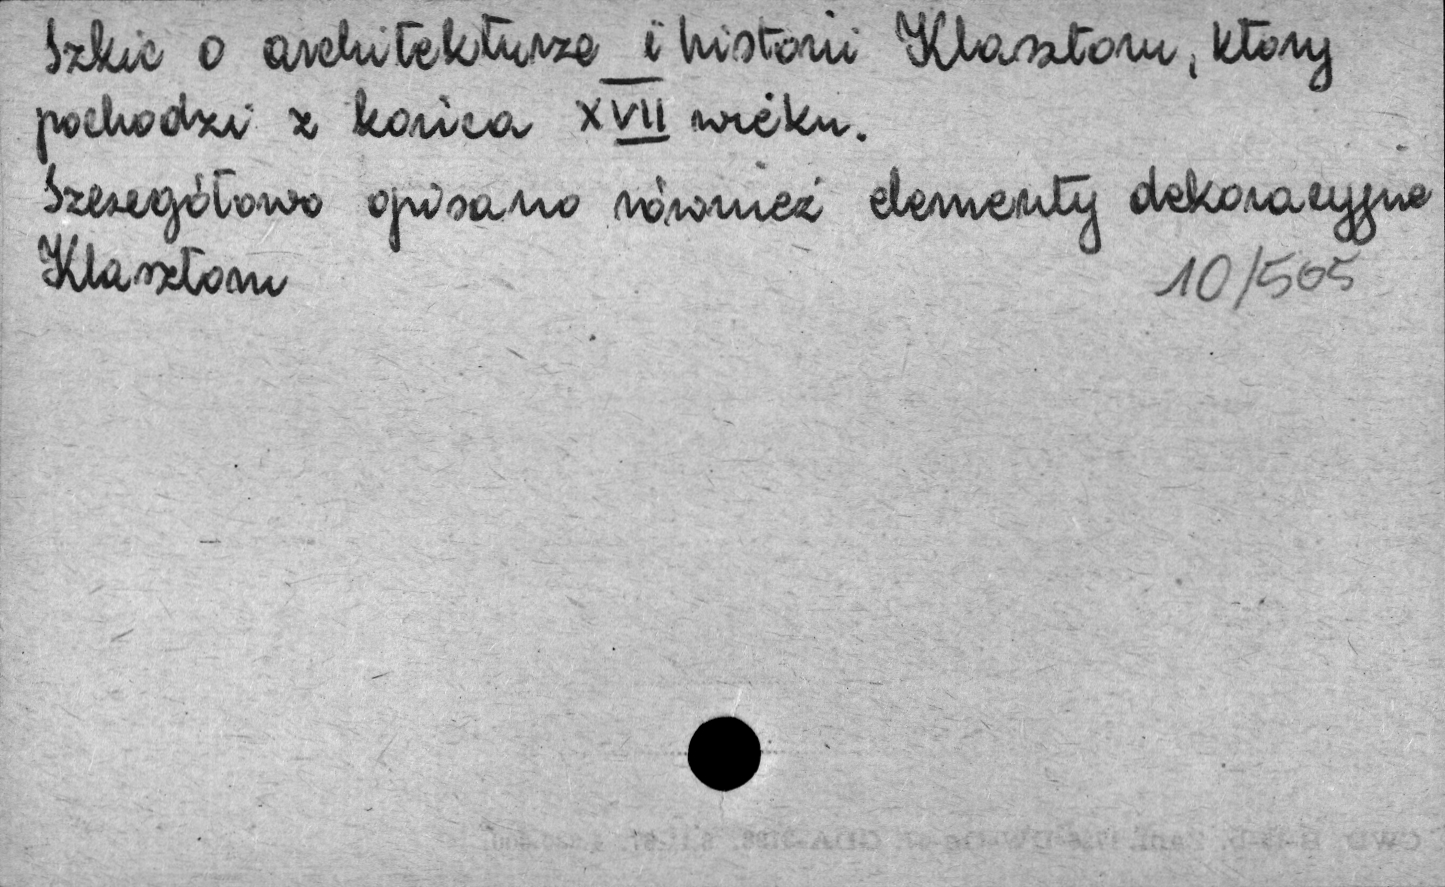 Szkic o architekturze i historii Klasztoru, który
pochodzi z końca XVII wieku.
Szczegółowo opisano również elementy dekoracyjne
Klasztoru
10/505